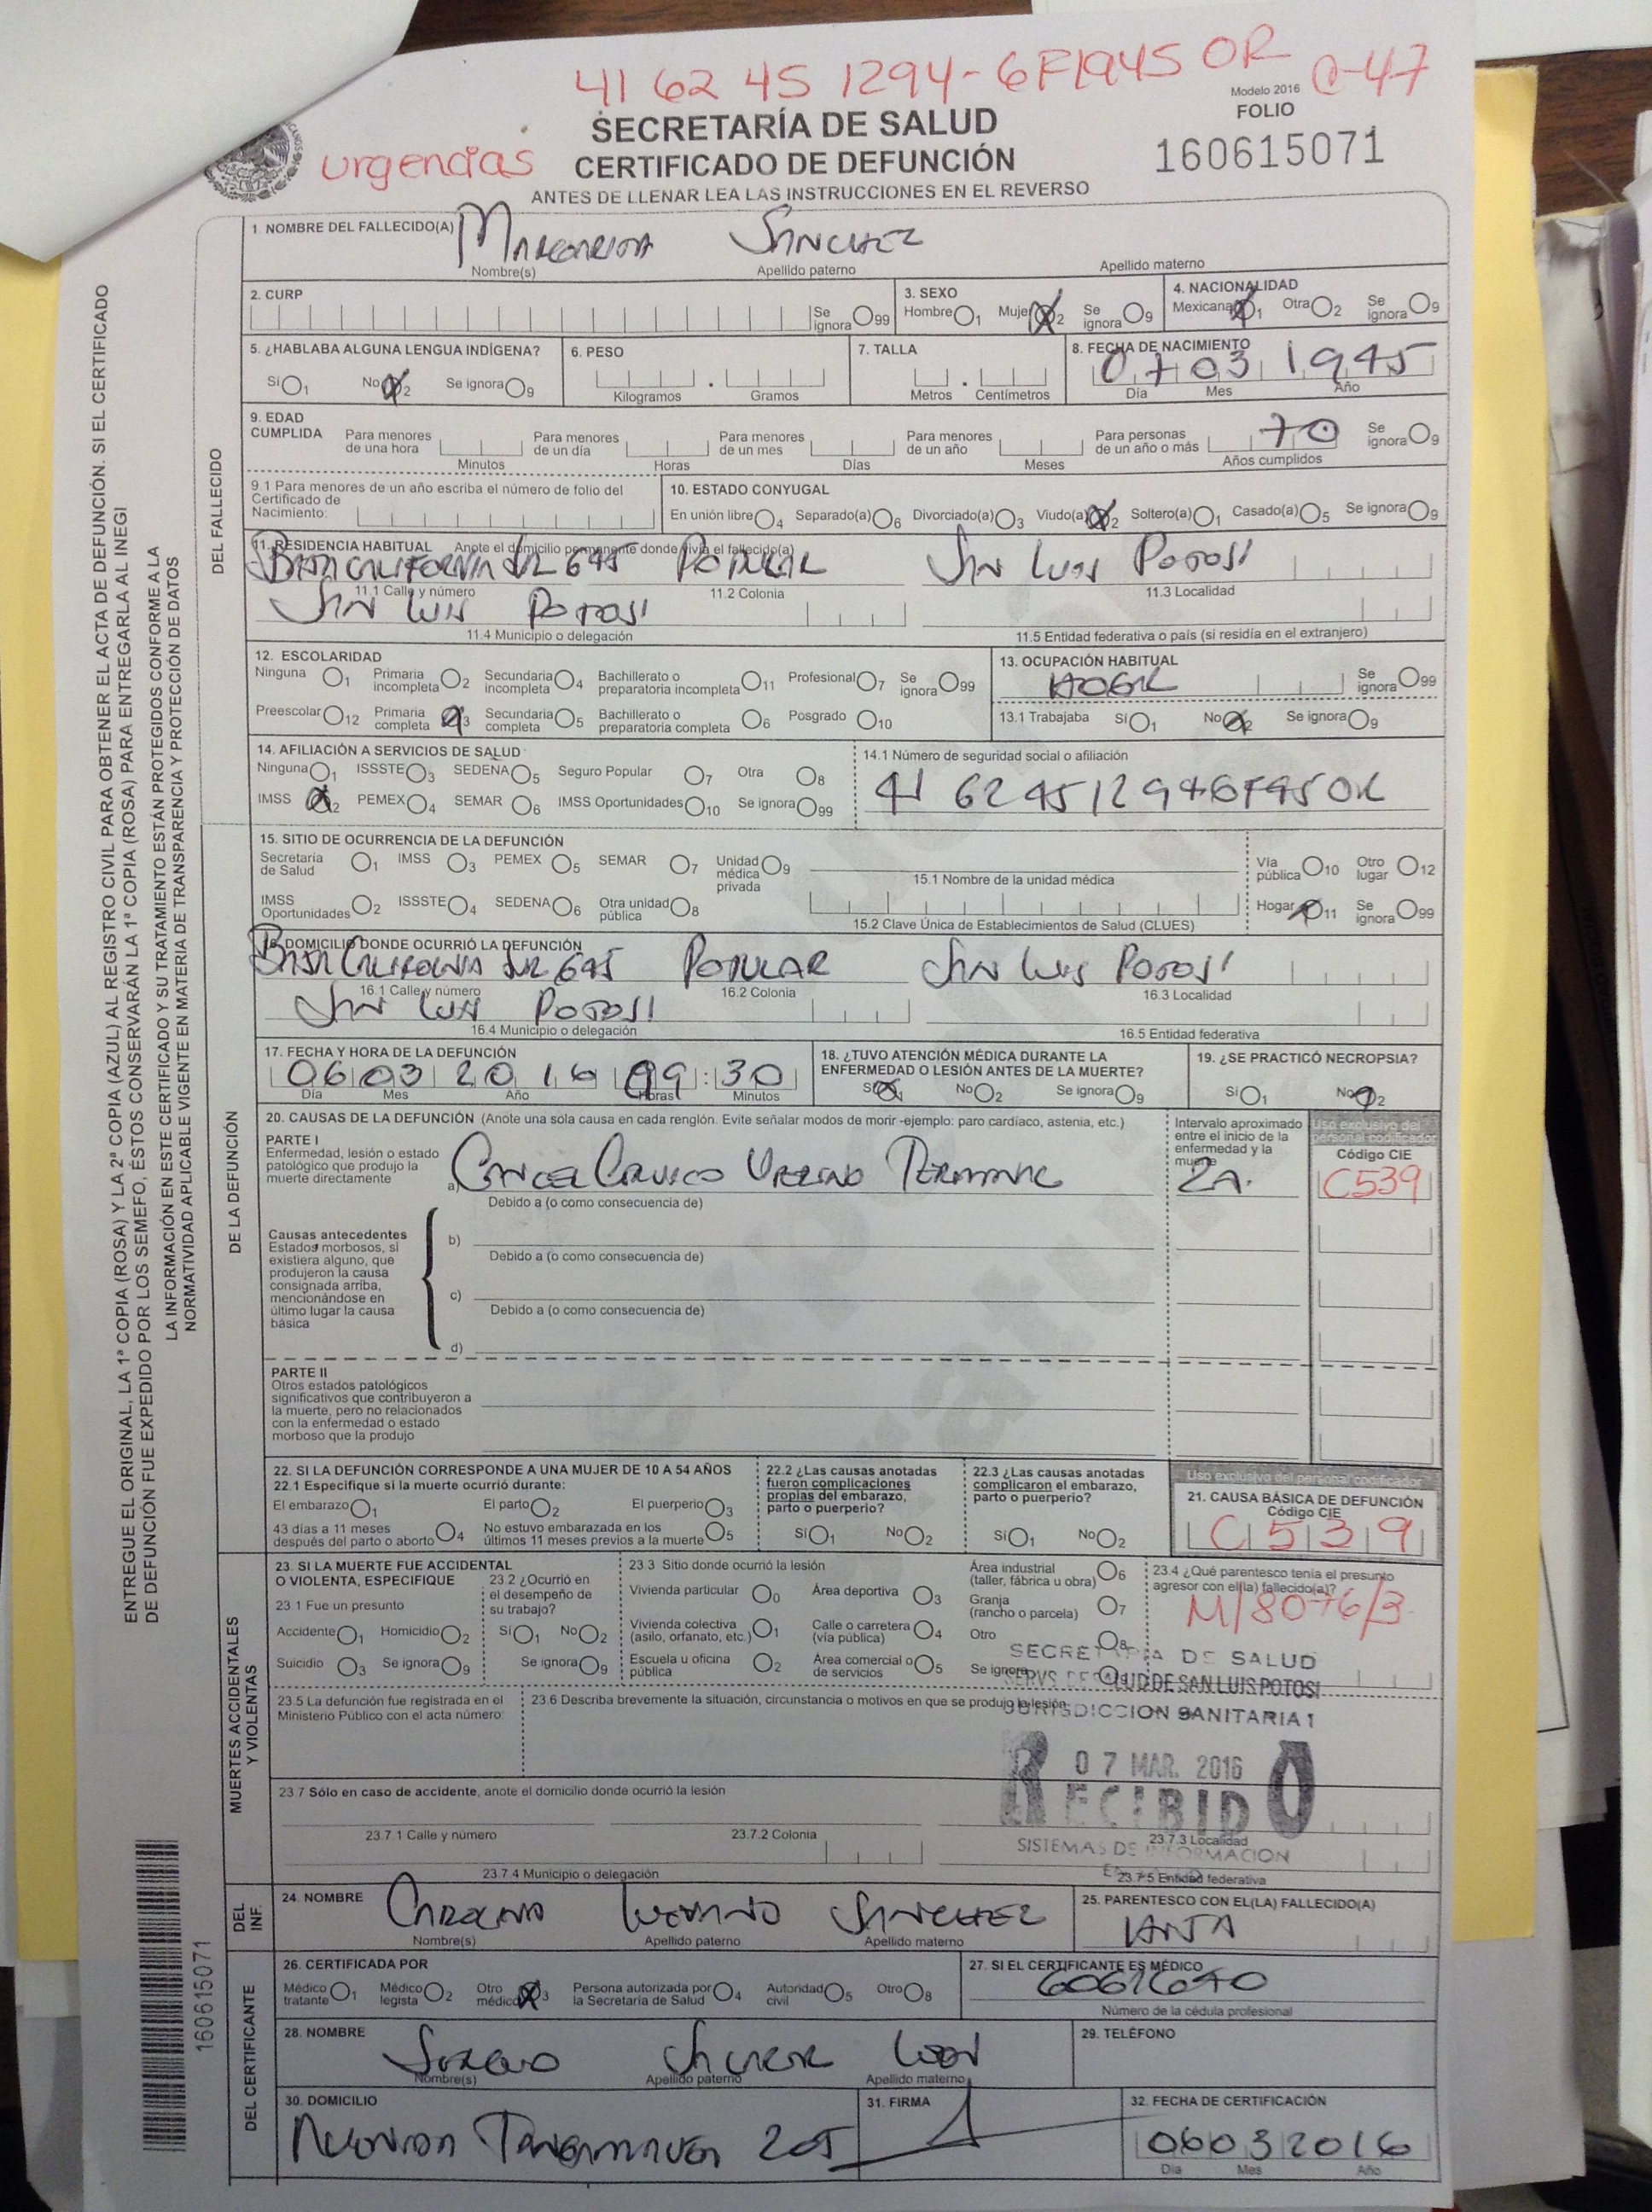 41 62 45 1294-6F1945 OR C-47
Modelo 2016
SECRETARÍA DE SALUD
FOLIO
urgencias
CERTIFICADO DE DEFUNCIÓN
160615071
ANTES DE LLENAR LEA LAS INSTRUCCIONES EN EL REVERSO
ENTREGUE EL ORIGINAL, LA 1ª COPIA (ROSA) Y LA 2ª COPIA (AZUL) AL REGISTRO CIVIL PARA OBTENER EL ACTA DE DEFUNCIÓN. SI EL CERTIFICADO
DE DEFUNCIÓN FUE EXPEDIDO POR LOS SEMEFO, ÉSTOS CONSERVARÁN LA 1ª COPIA (ROSA) PARA ENTREGARLA AL INEGI
LA INFORMACIÓN EN ESTE CERTIFICADO Y SU TRATAMIENTO ESTÁN PROTEGIDOS CONFORME A LA
NORMATIVIDAD APLICABLE VIGENTE EN MATERIA DE TRANSPARENCIA Y PROTECCIÓN DE DATOS
160615071
DEL FALLECIDO
1. NOMBRE DEL FALLECIDO(A) MARGARITA SANCHEZ
Nombre(s) Apellido paterno Apellido materno
2. CURP Se ignora 99
3. SEXO Hombre 1 Mujer 2 Se ignora 9
4. NACIONALIDAD Mexicana 1 Otra 2 Se ignora 9
5. ¿HABLABA ALGUNA LENGUA INDÍGENA?
Sí 1 No 2 Se ignora 9
6. PESO
Kilogramos Gramos
7. TALLA
Metros Centímetros
8. FECHA DE NACIMIENTO
07 03 1945
Día Mes Año
9. EDAD CUMPLIDA
Para menores de una hora Minutos
Para menores de un día Horas
Para menores de un mes Días
Para menores de un año Meses
Para personas de un año o más 70 Años cumplidos
Se ignora 9
9.1 Para menores de un año escriba el número de folio del Certificado de Nacimiento:
10. ESTADO CONYUGAL
En unión libre 4 Separado(a) 6 Divorciado(a) 3 Viudo(a) 2 Soltero(a) 1 Casado(a) 5 Se ignora 9
11. RESIDENCIA HABITUAL Anote el domicilio permanente donde vivía el fallecido(a)
BAJA CALIFORNIA SUR 645 POPULAR SAN LUIS POTOSI
11.1 Calle y número 11.2 Colonia 11.3 Localidad
SAN LUIS POTOSI
11.4 Municipio o delegación 11.5 Entidad federativa o país (si residía en el extranjero)
12. ESCOLARIDAD
Ninguna 1 Primaria incompleta 2 Secundaria incompleta 4 Bachillerato o preparatoria incompleta 11 Profesional 7 Se ignora 99
Preescolar 12 Primaria completa 3 Secundaria completa 5 Bachillerato o preparatoria completa 6 Posgrado 10
13. OCUPACIÓN HABITUAL
HOGAR Se ignora 99
13.1 Trabajaba Sí 1 No 2 Se ignora 9
14. AFILIACIÓN A SERVICIOS DE SALUD
Ninguna 1 ISSSTE 3 SEDENA 5 Seguro Popular 7 Otra 8
IMSS 2 PEMEX 4 SEMAR 6 IMSS Oportunidades 10 Se ignora 99
14.1 Número de seguridad social o afiliación
41 62451294 6F45OR
DE LA DEFUNCIÓN
15. SITIO DE OCURRENCIA DE LA DEFUNCIÓN
Secretaría de Salud 1 IMSS 3 PEMEX 5 SEMAR 7 Unidad médica privada 9
15.1 Nombre de la unidad médica
Vía pública 10 Otro lugar 12
IMSS Oportunidades 2 ISSSTE 4 SEDENA 6 Otra unidad pública 8
15.2 Clave Única de Establecimientos de Salud (CLUES)
Hogar 11 Se ignora 99
16. DOMICILIO DONDE OCURRIÓ LA DEFUNCIÓN
BAJA CALIFORNIA SUR 645 POPULAR SAN LUIS POTOSI
16.1 Calle y número 16.2 Colonia 16.3 Localidad
SAN LUIS POTOSI
16.4 Municipio o delegación 16.5 Entidad federativa
17. FECHA Y HORA DE LA DEFUNCIÓN
06 03 2016 09:30
Día Mes Año Horas Minutos
18. ¿TUVO ATENCIÓN MÉDICA DURANTE LA ENFERMEDAD O LESIÓN ANTES DE LA MUERTE?
Sí 1 No 2 Se ignora 9
19. ¿SE PRACTICÓ NECROPSIA?
Sí 1 No 2
20. CAUSAS DE LA DEFUNCIÓN (Anote una sola causa en cada renglón. Evite señalar modos de morir -ejemplo: paro cardíaco, astenia, etc.)
Intervalo aproximado entre el inicio de la enfermedad y la muerte
Uso exclusivo del personal codificador
Código CIE
PARTE I
Enfermedad, lesión o estado patológico que produjo la muerte directamente
a) CANCER CERVICO UTERINO TERMINAL 2A. C539
Debido a (o como consecuencia de)
Causas antecedentes
Estados morbosos, si existiera alguno, que produjeron la causa consignada arriba, mencionándose en último lugar la causa básica
b)
Debido a (o como consecuencia de)
c)
Debido a (o como consecuencia de)
d)
PARTE II
Otros estados patológicos significativos que contribuyeron a la muerte, pero no relacionados con la enfermedad o estado morboso que la produjo
22. SI LA DEFUNCIÓN CORRESPONDE A UNA MUJER DE 10 A 54 AÑOS
22.1 Especifique si la muerte ocurrió durante:
El embarazo 1 El parto 2 El puerperio 3
43 días a 11 meses después del parto o aborto 4 No estuvo embarazada en los últimos 11 meses previos a la muerte 5
22.2 ¿Las causas anotadas fueron complicaciones propias del embarazo, parto o puerperio?
Sí 1 No 2
22.3 ¿Las causas anotadas complicaron el embarazo, parto o puerperio?
Sí 1 No 2
Uso exclusivo del personal codificador
21. CAUSA BÁSICA DE DEFUNCIÓN
Código CIE
C539
MUERTES ACCIDENTALES Y VIOLENTAS
23. SI LA MUERTE FUE ACCIDENTAL O VIOLENTA, ESPECIFIQUE
23.1 Fue un presunto
Accidente 1 Homicidio 2
Suicidio 3 Se ignora 9
23.2 ¿Ocurrió en el desempeño de su trabajo?
Sí 1 No 2
Se ignora 9
23.3 Sitio donde ocurrió la lesión
Vivienda particular 0 Área deportiva 3 Área industrial (taller, fábrica u obra) 6
Vivienda colectiva (asilo, orfanato, etc.) 1 Calle o carretera (vía pública) 4 Granja (rancho o parcela) 7
Escuela u oficina pública 2 Área comercial o de servicios 5 Otro 8
Se ignora
23.4 ¿Qué parentesco tenía el presunto agresor con el(la) fallecido(a)?
M/8076/3
SECRETARIA DE SALUD
SERVS DE SALUD DE SAN LUIS POTOSI
JURISDICCION SANITARIA 1
07 MAR. 2016
RECIBIDO
SISTEMAS DE INFORMACION
23.5 La defunción fue registrada en el Ministerio Público con el acta número:
23.6 Describa brevemente la situación, circunstancia o motivos en que se produjo la lesión
23.7 Sólo en caso de accidente, anote el domicilio donde ocurrió la lesión
23.7.1 Calle y número 23.7.2 Colonia 23.7.3 Localidad
23.7.4 Municipio o delegación 23.7.5 Entidad federativa
DEL INF.
24. NOMBRE CAROLINA SANCHEZ
Nombre(s) Apellido paterno Apellido materno
25. PARENTESCO CON EL(LA) FALLECIDO(A)
DEL CERTIFICANTE
26. CERTIFICADA POR
Médico tratante 1 Médico legista 2 Otro médico 3 Persona autorizada por la Secretaría de Salud 4 Autoridad civil 5 Otro 8
27. SI EL CERTIFICANTE ES MÉDICO
Número de la cédula profesional
28. NOMBRE SERGIO
Nombre(s) Apellido paterno Apellido materno
29. TELÉFONO
30. DOMICILIO
TANGAMANGA 205
31. FIRMA
32. FECHA DE CERTIFICACIÓN
06032016
Día Mes Año